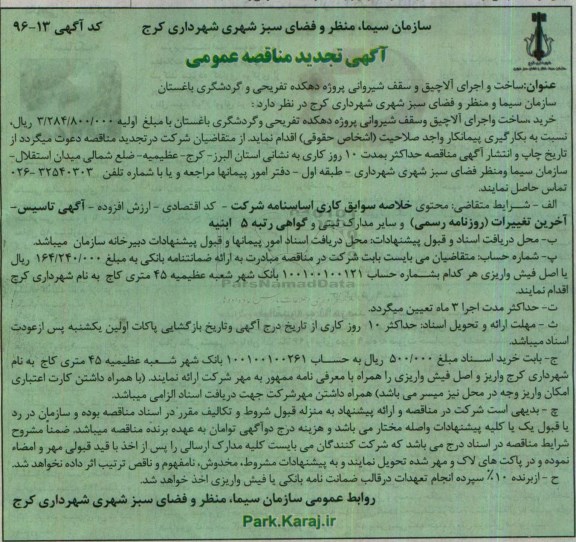 سازمان سیما، منظر و فضای سبز شهری شهرداری کرج
کد آگهی ۱۳-۹۶
آگهی تجدید مناقصه عمومی
عنوان:ساخت و اجرای آلاچیق و سقف شیروانی پروژه دهکده تفریحی و گردشگری باغستان
سازمان سیما و منظر و فضای سبز شهری شهرداری کرج در نظر دارد :
خرید ،ساخت واجرای آلاچیق وسقف شیروانی پروژه دهکده تفریحی وگردشگری باغستان با مبلغ اولیه ۳/۲۸۴/۸۰۰/۰۰۰ ریال،
نسبت به بکارگیری پیمانکار واجد صلاحیت (اشخاص حقوقی) اقدام نماید. از متقاضیان شرکت درتجدید مناقصه دعوت میگردد از
تاریخ چاپ و انتشار آگهی مناقصه حداکثر بمدت ۱۰ روز کاری به نشانی استان البرز- کرج-عظیمیه- ضلع شمالی میدان استقلال-
سازمان سیما ومنظر فضای سبز شهری شهرداری - طبقه اول - دفتر امور پیمانها مراجعه و یا با شماره تلفن ۳۲۵۴۰۳۰۳-۰۲۶
تماس حاصل نمایند.
الف - شرایط متقاضی: محتوی خلاصه سوابق کاری اساسنامه شرکت - کد اقتصادی - ارزش افزوده - آگهی تاسیس-
آخرین تغییرات (روزنامه رسمی) و سایر مدارک ثبتی و گواهی رتبه ۵ ابنیه
ب- محل دریافت اسناد و قبول پیشنهادات: محل دریافت اسناد امور پیمانها و قبول پیشنهادات دبیرخانه سازمان میباشد.
پ- شماره حساب: متقاضیان می بایست بابت شرکت در مناقصه مبادرت به ارائه ضمانتنامه بانکی به مبلغ ۱۶۴/۲۴۰/۰۰۰ ریال
یا اصل فیش واریزی هر کدام بشماره حساب ۱۰۰۱۰۰۱۰۰۱۲۱ بانک شهر شعبه عظیمیه ۴۵ متری کاج به نام شهرداری کرج
اقدام نمایند.
ت- حداکثر مدت اجرا ۳ ماه تعیین میگردد.
ث - مهلت ارائه و تحویل اسناد: حداکثر ۱۰ روز کاری از تاریخ درج آگهی وتاریخ بازگشایی پاکات اولین یکشنبه پس ازعودت
اسناد میباشد.
ج- بابت خرید اسناد مبلغ ۵۰۰/۰۰۰ ریال به حساب ۱۰۰۱۰۰۱۰۰۲۶۱ بانک شهر شعبه عظیمیه ۴۵ متری کاج به نام
شهرداری کرج واریز و اصل فیش واریزی را همراه با معرفی نامه ممهور به مهر شرکت ارائه نمایند. (با همراه داشتن کارت اعتباری
امکان واریز وجه در محل نیز میسر می باشد) همراه داشتن مهرشرکت جهت دریافت اسناد الزامی میباشد.
چ - بدیهی است شرکت در مناقصه و ارائه پیشنهاد به منزله قبول شروط و تکالیف مقرر در اسناد مناقصه بوده و سازمان در رد
یا قبول یک یا کلیه پیشنهادات واصله مختار می باشد و هزینه درج دوآگهی توامان به عهده برنده مناقصه میباشد. ضمناً مشروح
شرایط مناقصه در اسناد درج می باشد که شرکت کنندگان می بایست کلیه مدارک ارسالی را پس از اخذ با قید قبولی مهر و امضاء
نموده و در پاکت های لاک و مهر شده تحویل نمایند و به پیشنهادات مشروط، مخدوش، نامفهوم و ناقص ترتیب اثر داده نخواهد شد.
ح - ازبرنده ۱۰٪ سپرده انجام تعهدات درقالب ضمانت نامه بانکی یا فیش واریزی اخذ خواهد شد.
روابط عمومی سازمان سیما، منظر و فضای سبز شهری شهرداری کرج
Park.Karaj.ir
ParsNamadData